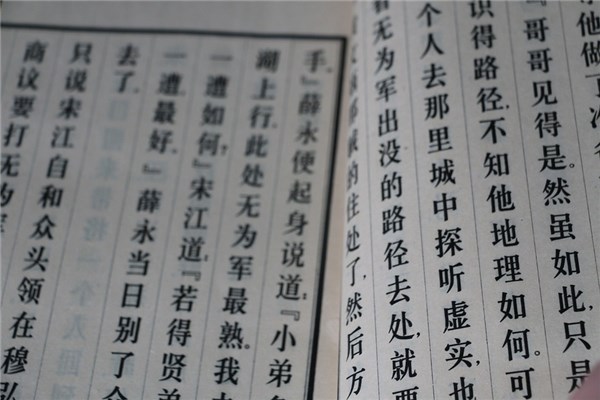 识得路径，不知他地理如何。可
『哥哥见得是。然虽如此，只是
个人去那里城中探听虚实，也
看无为军出没的路径去处，就要
的住处了，然后方
手。』薛永便起身说道：『小弟多
湖上行，此处无为军最熟。我
一遭如何？』宋江道：『若得贤弟
一遭，最好。』薛永当日别了
去了。
只说宋江自和众头领在穆弘
商议要打无为军